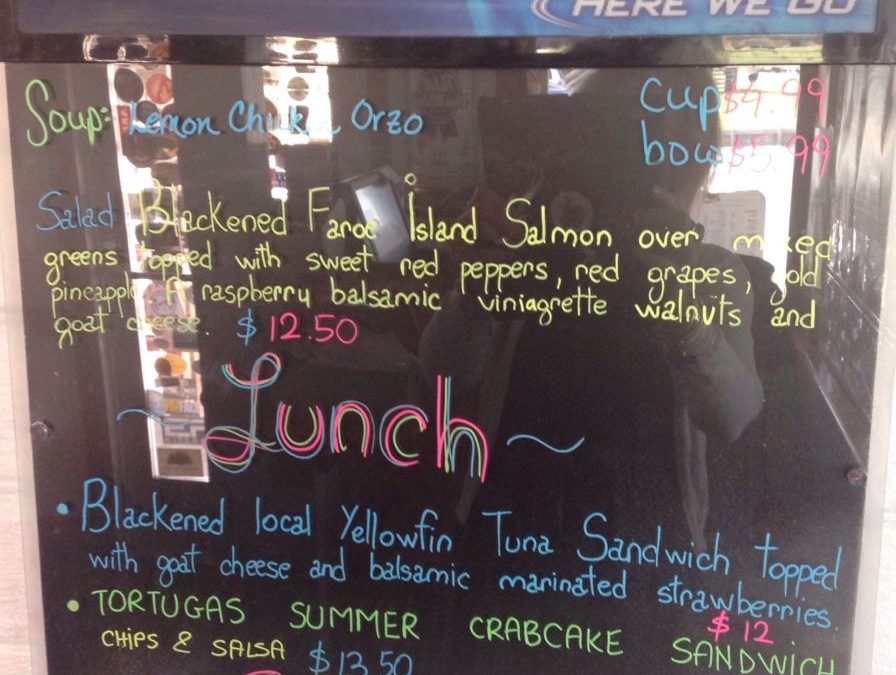 HERE WE GO
Soup: Lemon Chicken Orzo
Cup $4.99
bowl $5.99
Salad Blackened Faroe Island Salmon over mixed
greens topped with sweet red peppers, red grapes, gold
pineapple, A raspberry balsamic viniagrette walnuts and
goat cheese. $12.50
~Lunch~
• Blackened local Yellowfin Tuna Sandwich topped
with goat cheese and balsamic marinated strawberries.
$12
• TORTUGAS SUMMER CRABCAKE SANDWICH
CHIPS & SALSA $13.50